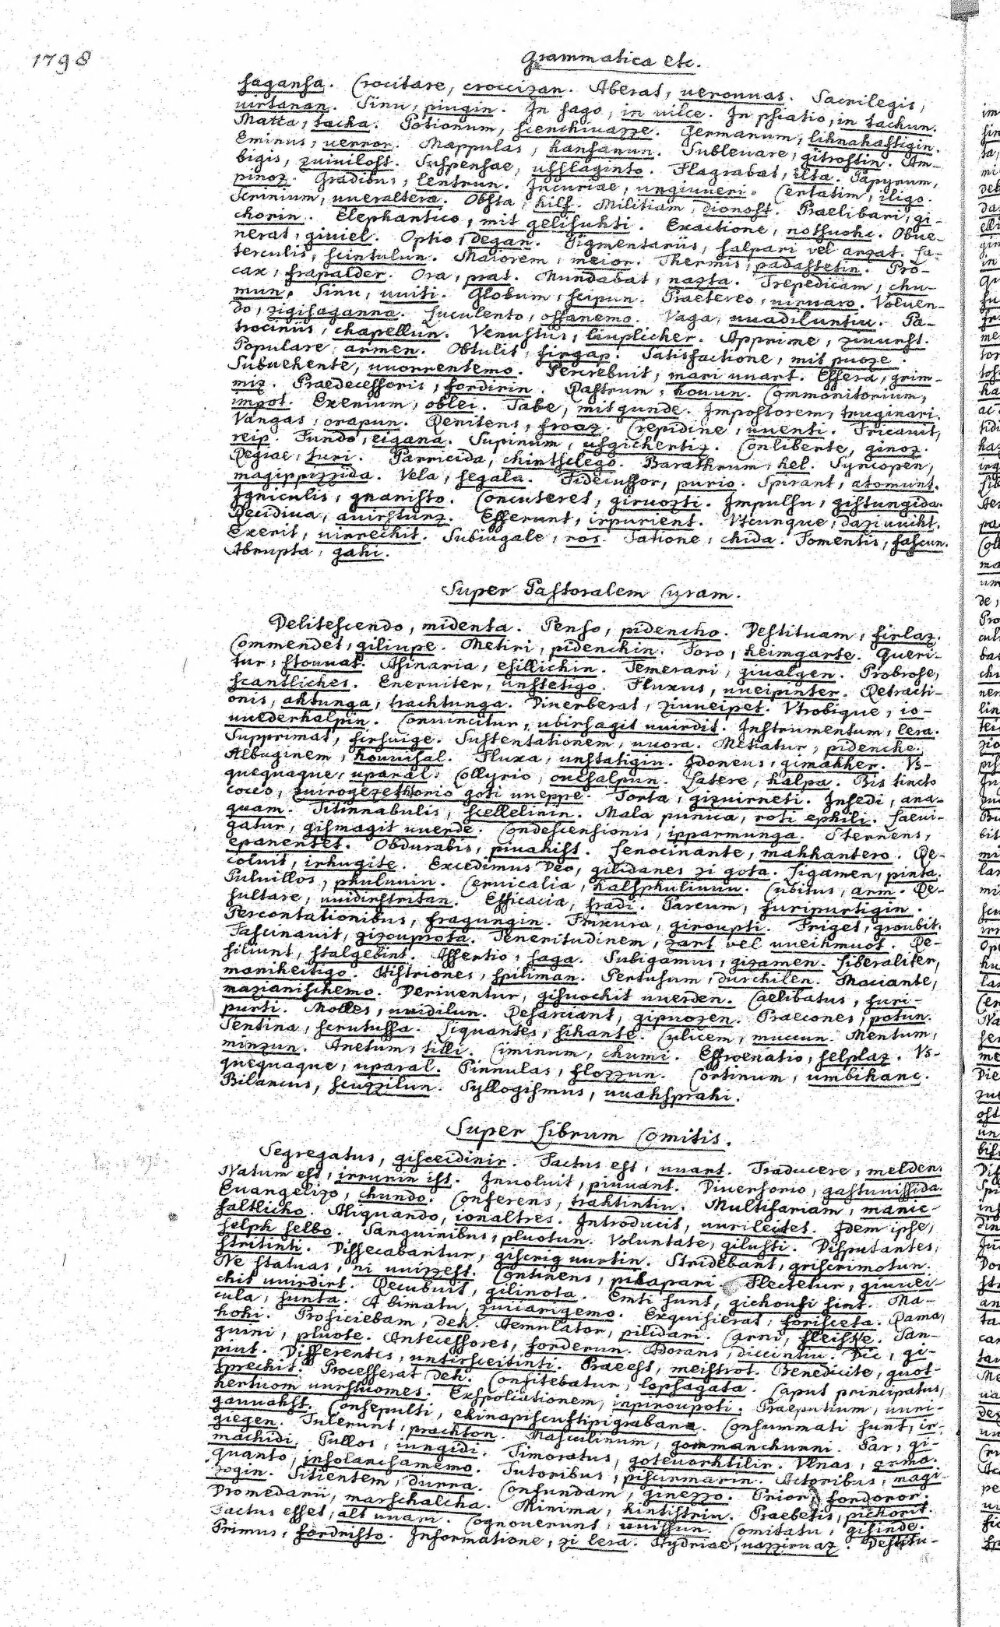 1798
Grammatica etc.
saganʃa. Crocitare, croccizan. Aberat, ueronuas. Sacrilegis,
uirtanan. Sinu, piugin. In sago, in uilce. In psiatio, in tachun.
Matta, tacha. Potionum, scenchuuazze. Germanum, liknahastigin.
Eminus, uerror. Mappulas, hansanun. Subleuare, gitrostin. Am-
bigis, zuiuilost. Suspensae, ufslaginto. Flagrabat, ilta. Papyrum,
pinoz. Gradibus, lentrun. Incuriae, ungiuueri. Certatim, iligo.
Scrinium, uueraltera. Obsta, hilf. Militiam, dionost. Praelibari, gi-
chorin. Elephantico, mit gelisuhti. Exactione, notsuohc. Obue-
nerat, giuiel. Optio, degan. Pigmentariis, salpari vel arzat. Sa-
terculis, scintulun. Maiorem, meior. Thermis, padastetin. Pro-
cax, frapalder. Ora, prat. Mundabat, nazta. Trepedicam, chu-
mun. Sinu, uuiti. Globum, scipun. Praetereo, uiruaro. Voluen-
do, zigisaganna. Luculento, offanemo. Vaga, uuadiluntiu. Pa-
trociniis, chapellun. Venustius, liuplicher. Apprime, zuurst.
Populare, armen. Obtulit, firgap. Satisfactione, mit puoze.
Subuehente, uuorrentemo. Percrebuit, mari uuart. Effera, grim-
miz. Praedecessoris, fordirin. Rastrum, houun. Commonitorium,
impot. Exenium, oblei. Tabe, mit gunde. Impostorem, truginari.
Vangas, grapun. Renitens, frooz. Crepidine, uuenti. Fricauit,
reip. Fundo, eigana. Supinum, ufgichentiz. Conlibente, ginoz.
Regiae, turi. Parricida, chintslego. Barathrum, hel. Syncopen,
magippizzida. Vela, segala. Fideiussor, purio. Spirant, atomunt.
Igniculis, gnanisto. Concuteret, giruozti. Impulsu, gistungida.
Recidiua, auirsturz. Efferunt, irpurient. Vtcunque, daziuuiht.
Exerit, uirrechit. Subiugale, ros. Satione, chida. Fomentis, fascun.
Abrupta, gahi.
Super Pastoralem Curam.
Delitescendo, midenta. Penso, pidencho. Destituam, firlaz.
Commendet, giliupe. Metiri, pidenchin. Foro, heimgarte. Queri-
tur, stouuat. Asinaria, esillichin. Temerari, giualgen. Probrose,
scantliches. Eneruiter, unstetigo. Fluxus, uueipinter. Retracti-
onis, ahtunga, trachtunga. Diuerberat, ziuueipet. Vtrobique, io-
uuederhalpin. Conuincitur, ubirsagit uuirdit. Instrumentum, lera.
Supprimat, firsuige. Sustentationem, uuora. Metiatur, pidenche.
Albuginem, houuisal. Fluxa, unstatigin. Idoneus, gimahher. Vs-
quequaque, uparal. Collyrio, oucsalpun. Latere, halpa. Bis tincto
cocco, zuirogezethtorio goti uueppe. Torta, gizuirneti. Insedi, ana-
quam. Titinnabulis, scellelinin. Mala punica, roti ephili. Saeui-
gatur, gismagit uuerde. Condescensionis, ipparmunga. Sternens,
epanentet. Obdurabis, piuahist. Lenocinante, mahhantero. Re-
coluit, irhugite. Excedimus Deo, gilidanes zi gota. Ligamen, pinta.
Puluillos, phuluuin. Ceruicalia, halsphuliuun. Cubitus, arm. Re-
sultare, uuidirstritan. Efficacia, fradi. Parcum, furipurtigin.
Percontationibus, fragungin. Frixura, giroupti. Friget, groubit.
Fascinauit, gizouprota. Teneritudinem, zart vel uueihmuot. De-
siliunt, stalgebint. Assertio, saga. Subigamus, gizamen. Liberaliter,
manheitigo. Histriones, spiliman. Pertusum, durchilen. Maciante,
mazianischemo. Deriuentur, gisuochit uuerden. Caelibatus, furi-
purti. Molles, uuidilun. Resarciant, gipuozen. Praecones, potun.
Sentina, scrutussa. Liquantes, sihante. Culicem, muccun. Mentum,
minzun. Anetum, tilli. Ciminum, chumi. Effrenatio, selplaz. Vs-
quequaque, uparal. Pinnulas, flozzun. Cortinum, umbihanc.
Bilancius, scuzzilun. Syllogismus, uuahsprahi.
Super Librum Comitis.
Segregatus, gisceidinir. Factus est, uuart. Traducere, melden.
Natum est, irrunin ist. Inuoluit, piuuant. Diuersorio, gastuuissida.
Euangelizo, chundo. Conferens, trahtintin. Multifariam, manic-
faltlicho. Aliquando, ionaltres. Introducit, uurileitet. Idem ipse,
selph selbo. Sanguinibus, pluotun. Voluntate, gilusti. Disputantes,
stritinti. Dissecabantur, giscrig uurtin. Stridebant, griscrimotun.
Ne statuas, ni uuizzest. Continens, pihapari. Flectetur, giuuei-
chit uuirdit. Recubuit, gilinota. Emti sunt, gichoufi sint. Ma-
cula, sunta. A bimatu, zuiiarigemo. Exquisierat, forisceta. Rama,
hohi. Proficiebam, deh. Aemulator, pilidari. Carni, fleiske. San-
guini, pluote. Antecessores, forderun. Adorans, diccintiu. Dic, gi-
piut. Differentes, untirsceitinti. Praeest, meistrot. Benedicite, guot
sprechit. Processerat, deh. Confitebatur, lopsagata. Caput principatus,
hertuom uursuomes. Exspoliationem, inpiroupoti. Praeputium, uuni-
gauuahst. Consepulti, ebinapiscustipigrabana. Consummati sunt, ir-
giegen. Tulerunt, prachton. Masculinum, gommanchunni. Par, gi-
machidi. Pullos, iungidi. Timoratus, goteuorhtilir. Vlnas, arma.
quanto, insolanchamemo. Tutoribus, piscirmarin. Actoribus, magi-
zogin. Sitientem, durra. Confundam, ginezzo. Prior, fordoror.
Dromedarii, marschalcha. Minima, hintistrin. Praebetis, pichorit.
Factus esset, alt uuari. Cognouerunt, uuissun. Comitatu, gisinde.
Primus, fordristo. Informatione, zi lera. Hydriae, uazziruaz. Destitu-